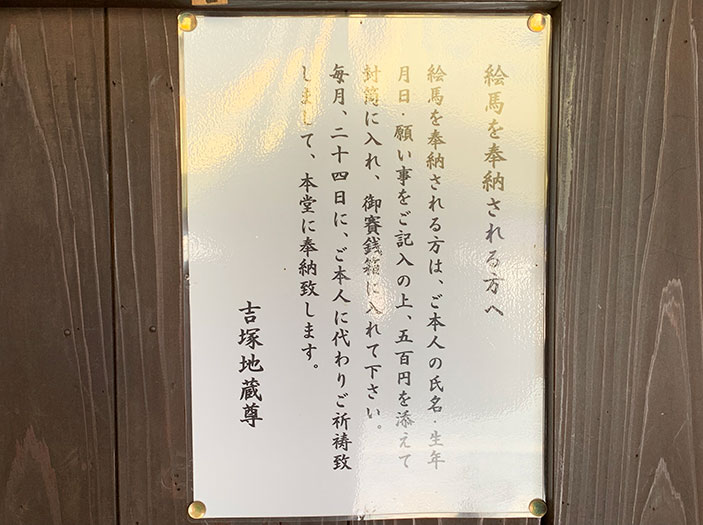 絵馬を奉納される方へ
絵馬を奉納される方は、ご本人の氏名・生年
月日・願い事をご記入の上、五百円を添えて
封筒に入れ、御賽銭箱に入れて下さい。
毎月、二十四日に、ご本人に代わりご祈祷致
しまして、本堂に奉納致します。
吉塚地蔵尊